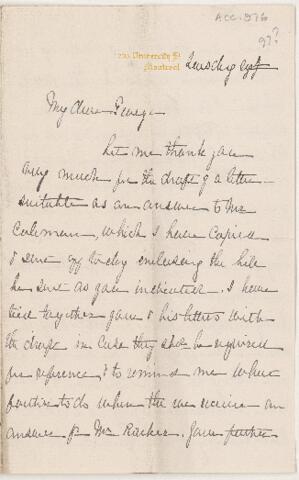 ACC. 576
97?
University St
Montreal
Tuesday
My dear George
Let me thank you
very much for the draft of a letter
suitable as an answer to Mr
Coleman, which I have copied
& sent off today enclosing the bill
he sent as you indicated. I have
tied together your & his letters with
the draft in case they shd be required
for reference & to remind me what
to do when the we receive an
answer fr Mr. Your